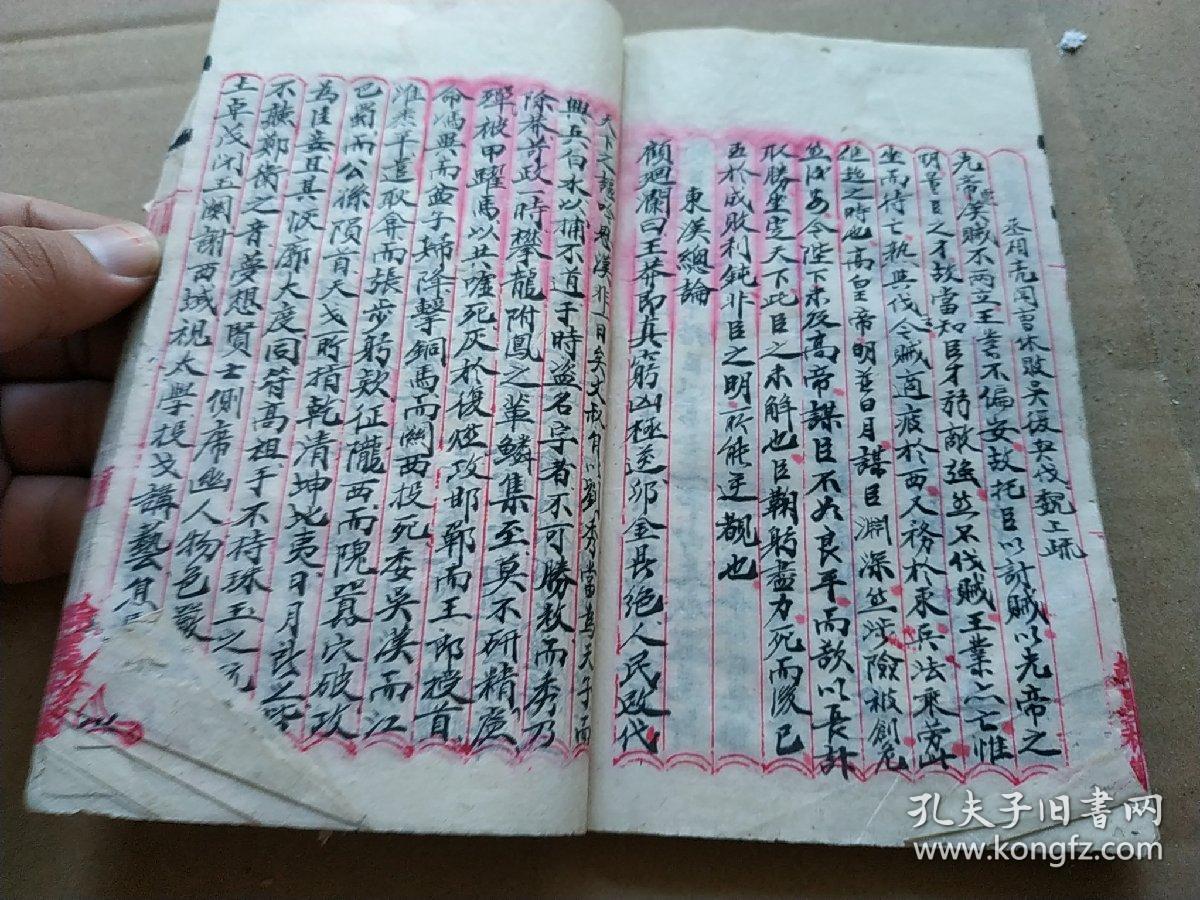 丞相亮聞曹休敗吳復欲伐魏上疏
先帝慮漢賊不兩立王業不偏安故托臣以討賊以先帝之
明量臣之才故當知臣才弱敵強然不伐賊王業亦亡惟
坐而待亡孰與伐今賊適疲於西又務於東兵法乘勞此
進趋之時也高皇帝明並日月謀臣淵深然涉險被創危
然後安今陛下未及高帝謀臣不如良平而欲以長計
取勝坐定天下此臣之未解也臣鞠躬盡力死而後已
至於成敗利鈍非臣之明所能逆覩也
東漢總論
顧迴瀾曰王莽即真窮凶極逆卯金長絕人民政代
天下之謳吟思漢非一日矣文叔自以劉秀當為天子而
興兵白水以捕不道于時盜名字者不可勝数而秀乃
除莽苛政一時攀龍附鳳之輩鱗集至莫不研精殫
彈被甲躍馬以共嘘死灰於復燃攻邯鄲而王郎授首
命馮異而盆子歸降擊銅馬而關西投死委吳漢而江
淮来平遣耿弇而張步窮效征隴西而隗囂穴破攻
巴蜀而公孫頂首天戈所指乾清坤夷日月
為佳妾且其恢廓大度同符高祖手不持珠玉之玩
不聽鄭衛之音夢想賢士側席幽人物色嚴
上卓茂閉玉關謝西域視太學投戈講藝
孔夫子旧書网
www.kongfz.com